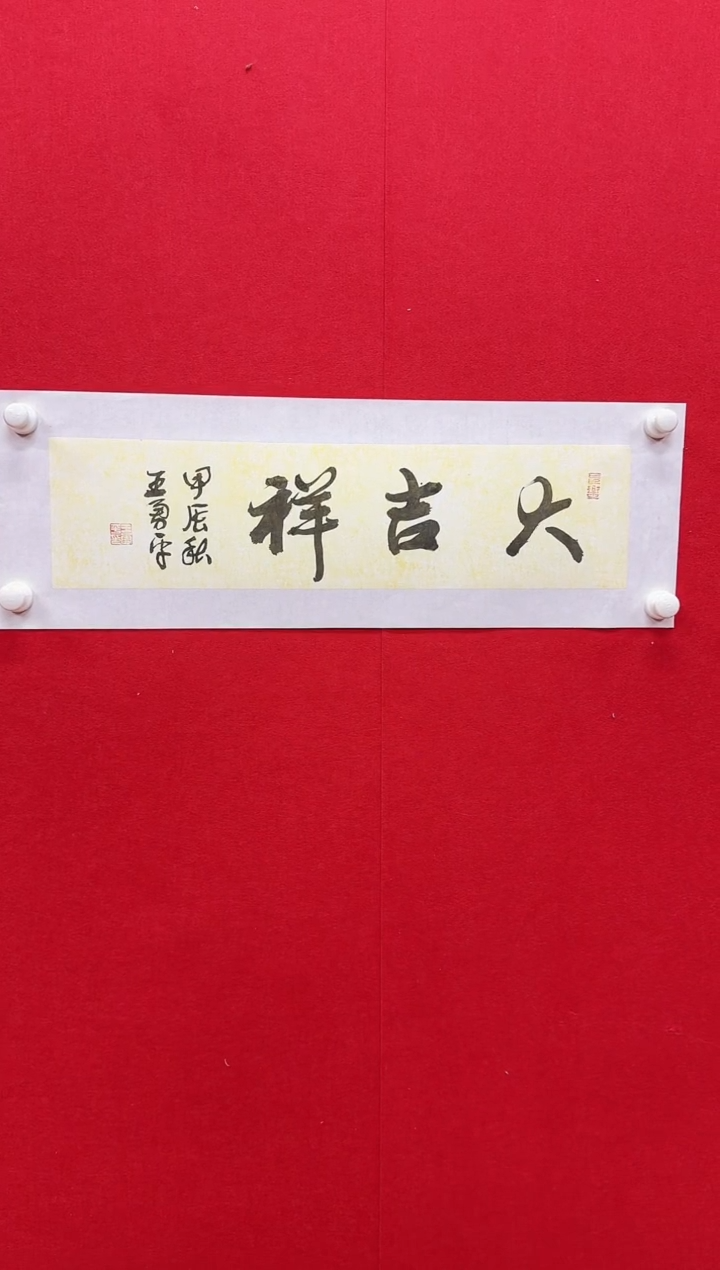 大吉祥
甲辰秋
王勇平